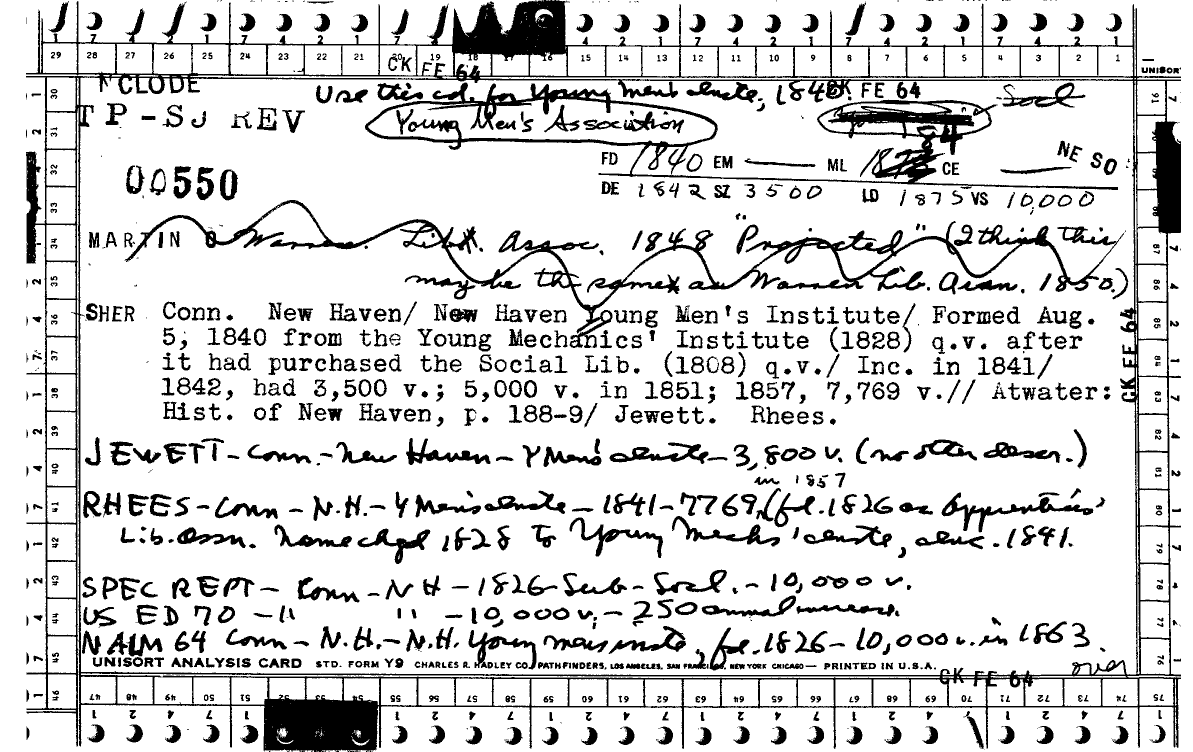 7 4 2 1 7 4 2 1 7 4 2 1 7 4 2 1 7 4 2 1
29 28 27 26 25 24 23 22 21 20 19 18 17 16 15 14 13 12 11 10 9 8 7 6 5 4 3 2 1
CK FE 64
UNISORT
NCLODE
Use this cd. for Young Men's Instte, 1840
CK FE 64
Socl
TP-SJ REV
Young Men's Association
84
FD 1840 EM ML 18 CE
NE SO
00550
DE 1842 SZ 3500 LD 1875 VS 10,000
MARTIN O Warren. Lib. Assoc. 1848 "Projected" (I think this
maybe the same as Warren Lib. Assn. 1850.)
SHER Conn. New Haven/ New Haven Young Men's Institute/ Formed Aug.
5, 1840 from the Young Mechanics' Institute (1828) q.v. after
it had purchased the Social Lib. (1808) q.v./ Inc. in 1841/
1842, had 3,500 v.; 5,000 v. in 1851; 1857, 7,769 v.// Atwater:
Hist. of New Haven, p. 188-9/ Jewett. Rhees.
CK FE 64
JEWETT-Conn.-New Haven-YMen's Instte-3,800 v. (no other descr.)
in 1857
RHEES-Conn-N.H.-YMen's Instte-1841-7769, (fd. 1826 as Apprentices'
Lib. Assn. Name chgd 1828 to Young Mechs' Instte, Inc. 1841.
SPEC REPT-Conn-NH-1826-Sub-Socl.-10,000 v.
US ED 70 -" " -10,000 v.-250 annual increase.
NALM 64 Conn-N.H.-N.H. Young mens inste, fd. 1826-10,000 v. in 1863.
UNISORT ANALYSIS CARD STD. FORM Y9 CHARLES R. HADLEY CO., PATHFINDERS, LOS ANGELES, SAN FRANCISCO, NEW YORK CHICAGO— PRINTED IN U.S.A.
over
CK FE 64